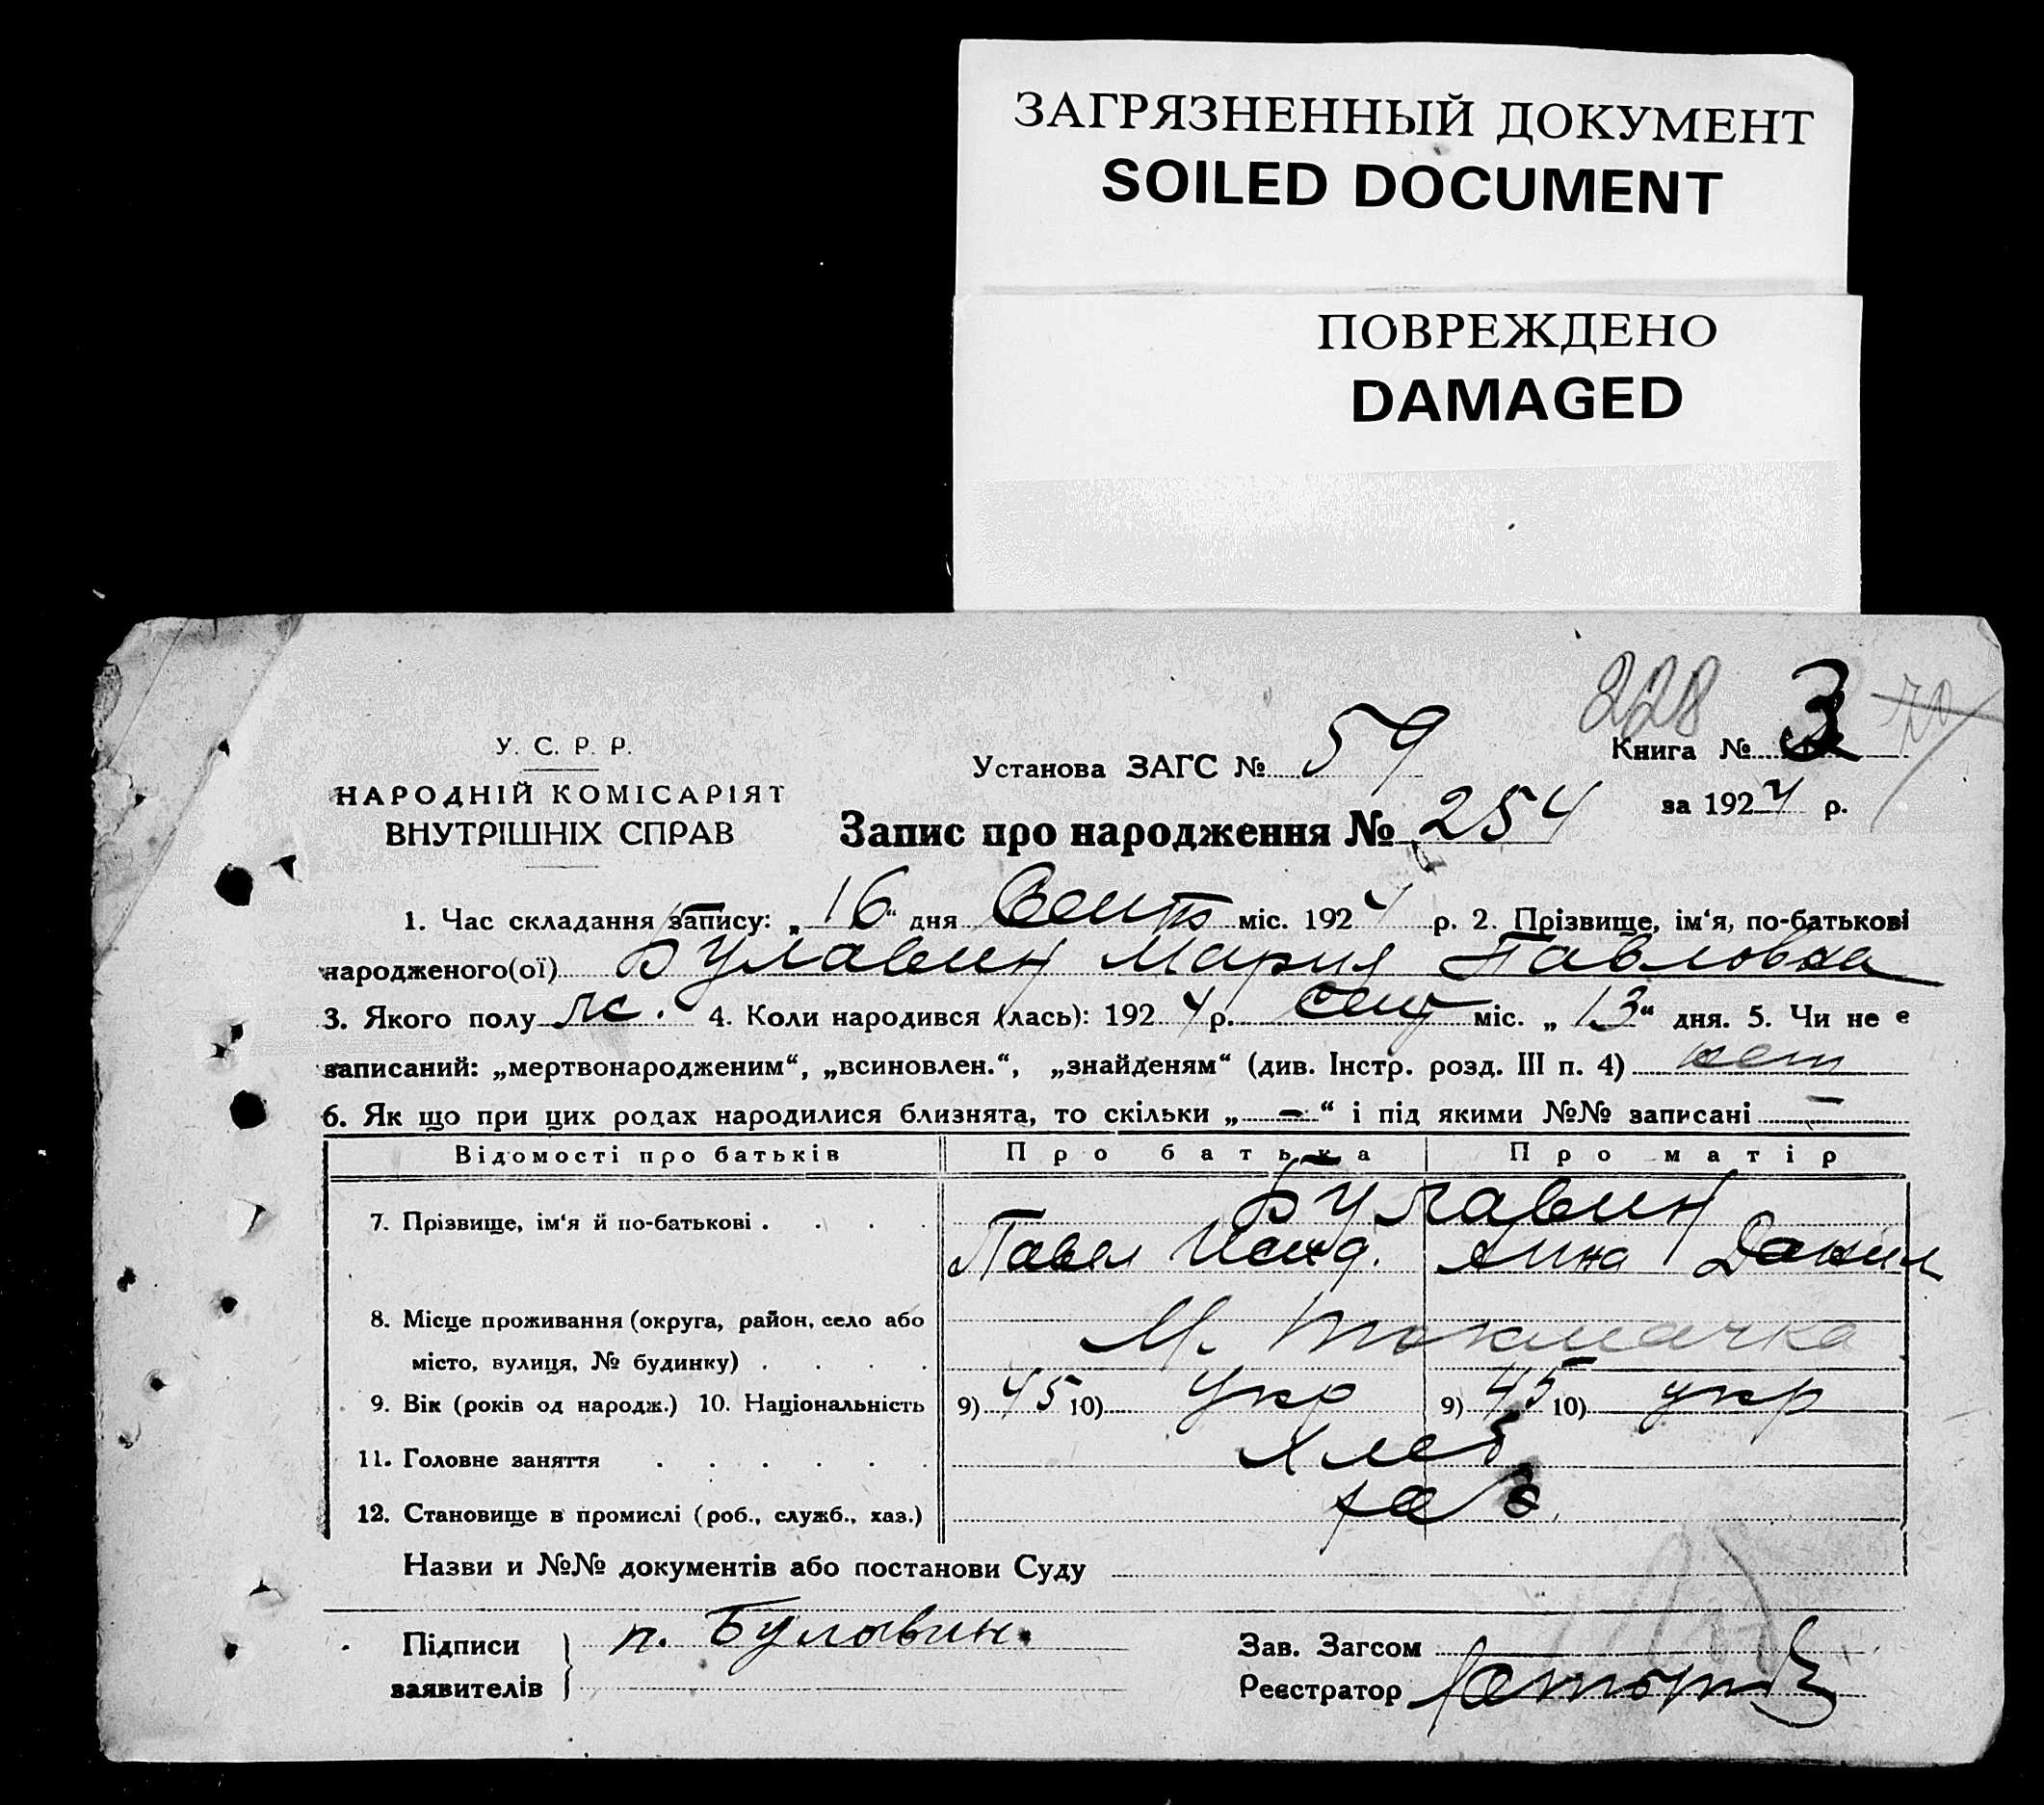 ЗАГРЯЗНЕННЫЙ ДОКУМЕНТ
SOILED DOCUMENT
ПОВРЕЖДЕНО
DAMAGED
228
У. С. Р. Р.
НАРОДНІЙ КОМІСАРІЯТ
ВНУТРІШНІХ СПРАВ
Установа ЗАГС № 59
Книга № 3
за 1924 р.
Запис про народження № 254
1. Час складання запису: „16“ дня Сент міс. 1924 р. 2. Прізвище, ім‘я, по-батькові
народженого(ої) Булавин Мария Павловна
3. Якого полу ж. 4. Коли народився (лась): 1924 р. сент міс. „13“ дня. 5. Чи не е
записаний: „мертвонародженим“, „всиновлен.“, „знайденям“ (див. Інстр. розд. III п. 4) нет
6. Як що при цих родах народилися близнята, то скільки „-“ і під якими №№ записані -
Відомості про батьків Про батька Про матір
Булавин
7. Прізвище, ім‘я й по-батькові . . . .
Павел Исид. Анна Данил
8. Місце проживання (округа, район, село або
місто, вулиця, № будинку) . . . . М. Токмачка
9. Вік (років од народж.) 10. Національність 9) 45 10) укр 9) 45 10) укр
11. Головне заняття . . . . . . Хлеб
12. Становище в промислі (роб., служб., хаз.) хаз
Назви и №№ документів або постанови Суду
Підписи п. Булавин.
заявителів
Зав. Загсом
Реєстратор